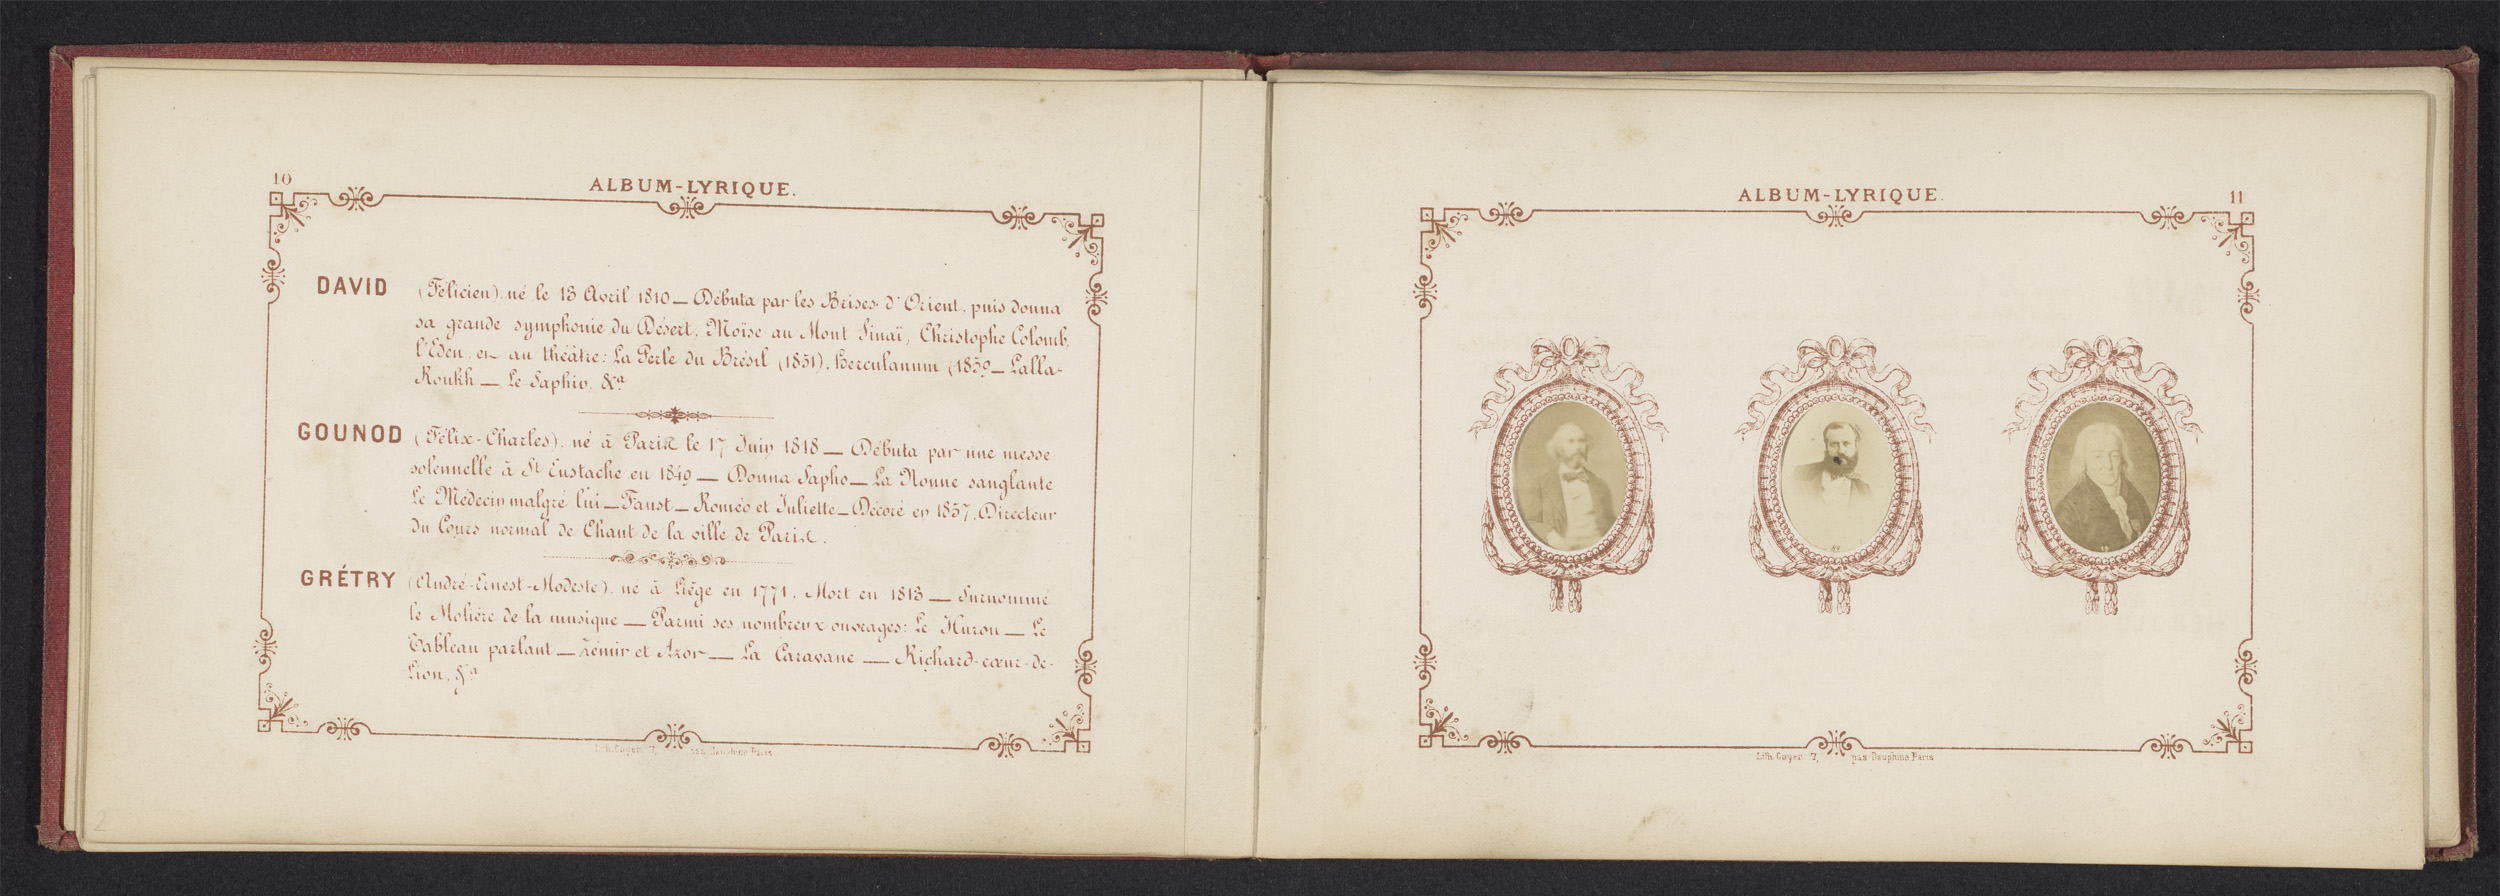 10
ALBUM-LYRIQUE.
DAVID (Félicien), né le 13 Avril 1810 — Débuta par les Brises d'Orient, puis donna
sa grande symphonie du Désert, Moïse au Mont Sinaï, Christophe Colomb,
l'Eden, en au théâtre: La Perle du Brésil (1851), Herculanum (1859 — Lalla-
Roukh — Le Saphir, &a
GOUNOD (Félix-Charles), né à Paris le 17 Juin 1818 — Débuta par une messe
solennelle à St Eustache en 1849 — Donna Sapho — La Nonne sanglante
Le Médecin malgré lui — Faust — Roméo et Juliette — Décoré en 1857, Directeur
du Cours normal de Chant de la ville de Paris.
GRÉTRY (André-Ernest-Modeste), né à Liège en 1771, Mort en 1813 — Surnommé
le Molière de la musique — Parmi ses nombreux ouvrages: Le Huron — Le
Tableau parlant — Zémir et Azor — La Caravane — Richard-cœur-de-
Lion, &a
Lith. Goyer 7, pas Dauphine Paris
2
ALBUM-LYRIQUE.
11
Lith. Goyer 7, pas Dauphine Paris